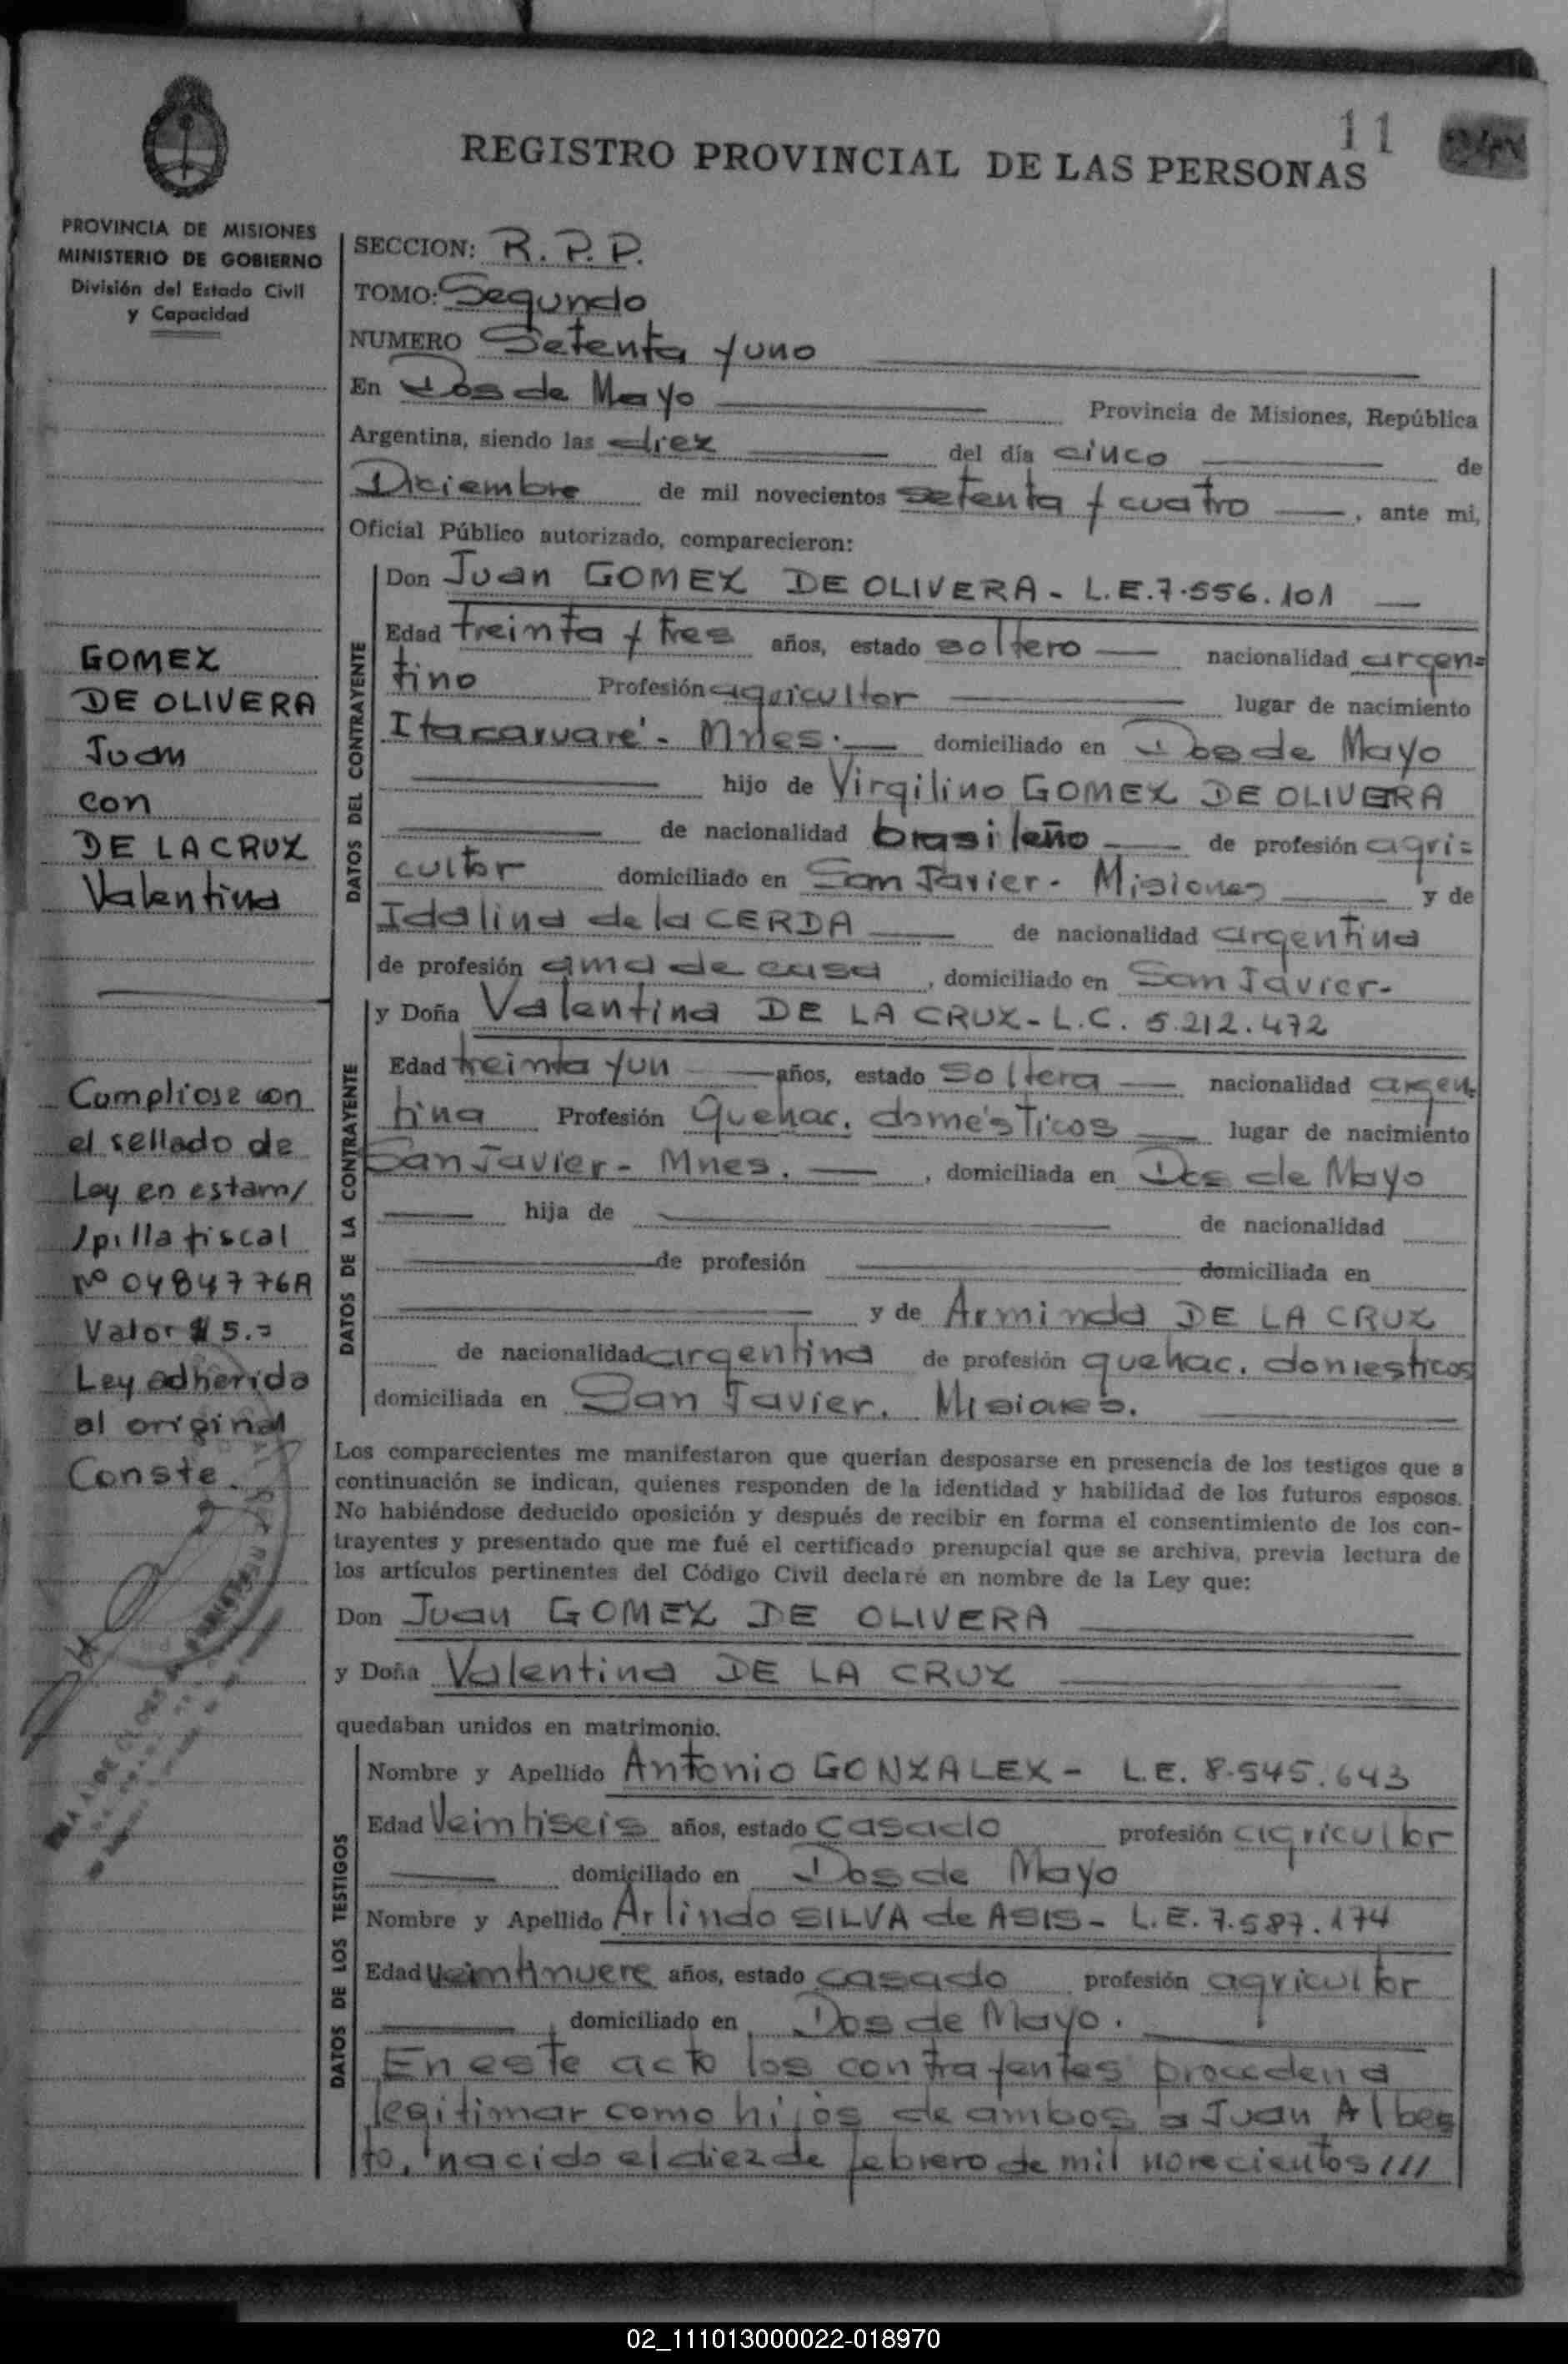 11
REGISTRO PROVINCIAL DE LAS PERSONAS
PROVINCIA DE MISIONES
MINISTERIO DE GOBIERNO
División del Estado Civil
y Capacidad
SECCION: R.P.P.
TOMO: Segundo
NUMERO Setenta y uno
En Dos de Mayo Provincia de Misiones, República
Argentina, siendo las diez del día cinco de
Diciembre de mil novecientos setenta y cuatro, ante mi,
Oficial Público autorizado, comparecieron:
DATOS DEL CONTRAYENTE
Don Juan GOMEZ DE OLIVERA - L.E. 7.556.101
Edad treinta y tres años, estado soltero nacionalidad argen=
tino Profesión agricultor lugar de nacimiento
Itacaruaré - Mnes. domiciliado en Dos de Mayo
hijo de Virgilino GOMEZ DE OLIVERA
de nacionalidad brasileño de profesión agri=
cultor domiciliado en San Javier - Misiones y de
Idalina de la CERDA de nacionalidad argentina
de profesión ama de casa, domiciliado en San Javier-
DATOS DE LA CONTRAYENTE
y Doña Valentina DE LA CRUZ - L.C. 5.212.472
Edad treinta y un años, estado soltera nacionalidad argen.
tina Profesión Quehac. domésticos lugar de nacimiento
San Javier - Mnes., domiciliada en Dos de Mayo
hija de de nacionalidad
de profesión domiciliada en
y de Arminda DE LA CRUZ
de nacionalidad argentina de profesión quehac. domesticos
domiciliada en San Javier. Misiones.
Los comparecientes me manifestaron que querían desposarse en presencia de los testigos que a
continuación se indican, quienes responden de la identidad y habilidad de los futuros esposos.
No habiéndose deducido oposición y después de recibir en forma el consentimiento de los con-
trayentes y presentado que me fué el certificado prenupcial que se archiva, previa lectura de
los artículos pertinentes del Código Civil declaré en nombre de la Ley que:
Don Juan GOMEZ DE OLIVERA
y Doña Valentina DE LA CRUZ
quedaban unidos en matrimonio.
DATOS DE LOS TESTIGOS
Nombre y Apellido Antonio GONZALEZ - L.E. 8.545.643
Edad Veintiseis años, estado casado profesión agricultor
domiciliado en Dos de Mayo
Nombre y Apellido Arlindo SILVA de ASIS - L.E. 7.587.174
Edad veintinueve años, estado casado profesión agricultor
domiciliado en Dos de Mayo.
En este acto los contrayentes proceden a
legitimar como hijos de ambos a Juan Alber
to, nacido el diez de febrero de mil novecientos ///
GOMEZ
DE OLIVERA
Juan
con
DE LA CRUZ
Valentina
Cumpliose con
el sellado de
Ley en estam/
/pilla fiscal
Nº 0484776A
Valor $ 5.=
Ley adherida
al original
Conste.
02_111013000022-018970